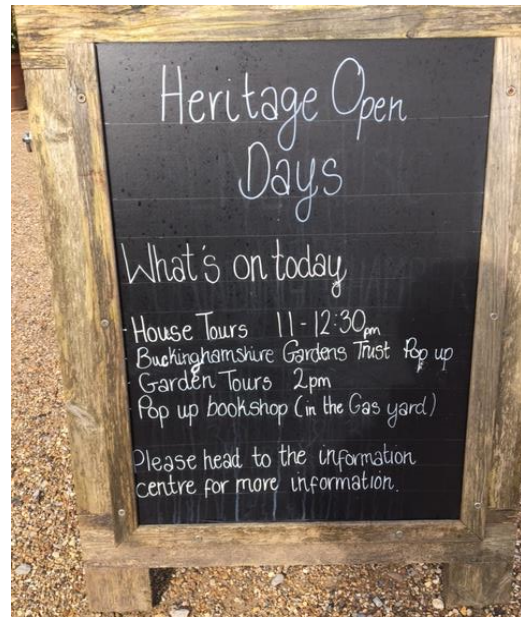 Heritage Open
Days
What's on today
- House Tours 11-12:30pm
- Buckinghamshire Gardens Trust Pop up
- Garden Tours 2pm
- Pop up bookshop (in the Gas yard)
Please head to the information
centre for more information.